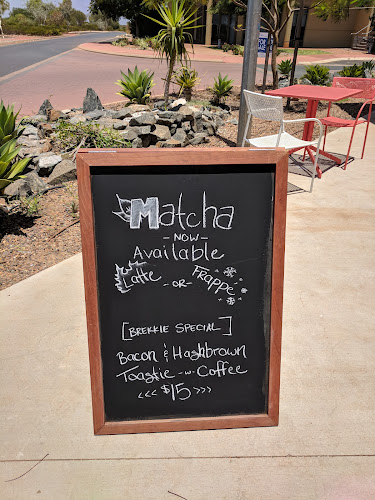 Matcha
- NOW -
Available
Latte - OR - Frappé
[BREKKIE SPECIAL]
Bacon & Hashbrown
Toastie -w- Coffee
<<< $15 >>>